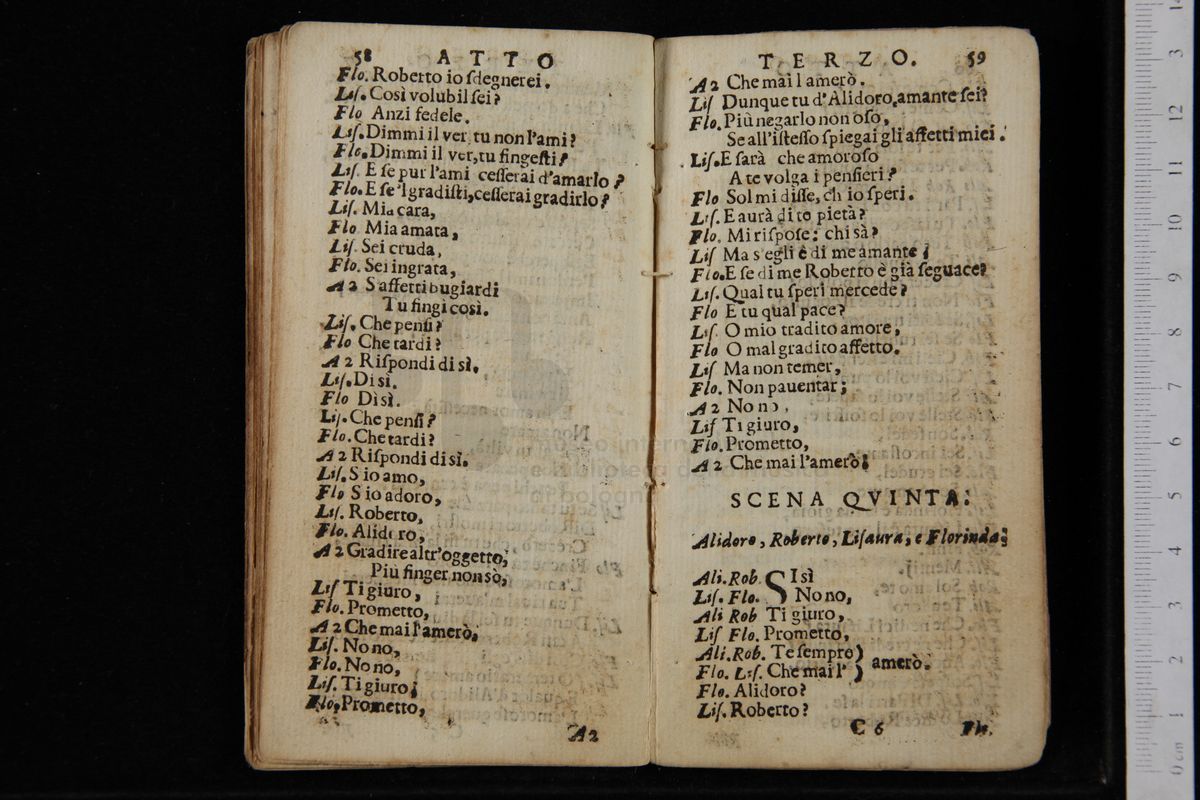 58 ATTO
Flo. Roberto io ſdegnerei.
Liſ. Così volubil ſei?
Flo Anzi fedele.
Liſ. Dimmi il ver, tu non l'ami?
Flo. Dimmi il ver, tu fingeſti?
Liſ. E ſe pur l'ami ceſſerai d'amarlo?
Flo. E ſe 'l gradiſti, ceſſerai gradirlo?
Liſ. Mia cara,
Flo Mia amata,
Liſ. Sei cruda,
Flo. Sei ingrata,
A 2 S'affetti bugiardi
Tu fingi così.
Liſ. Che penſi?
Flo Che tardi?
A 2 Riſpondi di sì.
Liſ. Di sì.
Flo Di sì.
Liſ. Che penſi?
Flo. Che tardi?
A 2 Riſpondi di sì.
Liſ. S io amo,
Flo S io adoro,
Liſ. Roberto,
Flo. Alidoro,
A 2 Gradire altr'oggetto,
Più finger non sò,
Liſ Ti giuro,
Flo. Prometto,
A 2 Che mai l'amerò.
Liſ. No no,
Flo. No no,
Liſ. Ti giuro,
Flo. Prometto,
A 2
TERZO. 59
A 2 Che mai l amerò.
Liſ Dunque tu d'Alidoro, amante ſei?
Flo. Più negarlo non oſo,
Se all'iſteſſo ſpiegai gli affetti miei.
Liſ. E ſarà che amoroſo
A te volga i penſieri?
Flo Sol mi diſſe, ch io ſperi.
Liſ. E aurà di te pietà?
Flo. Mi riſpoſe: chi sà?
Liſ Ma s'egli è di me amante;
Flo. E ſe di me Roberto è già ſeguace?
Liſ. Qual tu ſperi mercede?
Flo E tu qual pace?
Liſ. O mio tradito amore,
Flo O mal gradito affetto.
Liſ Ma non temer,
Flo. Non pauentar;
A 2 No no,
Liſ Ti giuro,
Flo. Prometto,
A 2 Che mai l'amerò!
SCENA QVINTA.
Alidoro, Roberto, Liſaura, e Florinda;
Ali. Rob. SI sì
Liſ. Flo. No no,
Ali Rob Ti giuro,
Liſ Flo. Prometto,
Ali. Rob. Te ſempre )
Flo. Liſ. Che mai l' ) amerò.
Flo. Alidoro?
Liſ. Roberto?
C 6 Flo.